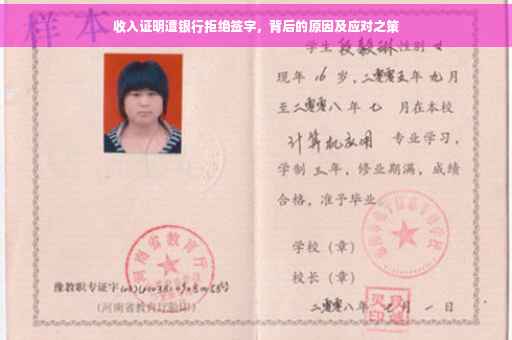 收入证明遭银行拒绝签字，背后的原因及应对之策
样本
学生段毅琳性别女
现年16岁，二零零五年九月
至二零零八年七月在本校
计算机应用专业学习，
学制三年，修业期满，成绩
合格，准予毕业
学校（章）
校长（章）
二零零八年 月一日
河南省教育厅
豫教职专证字
（河南省教育厅验印）